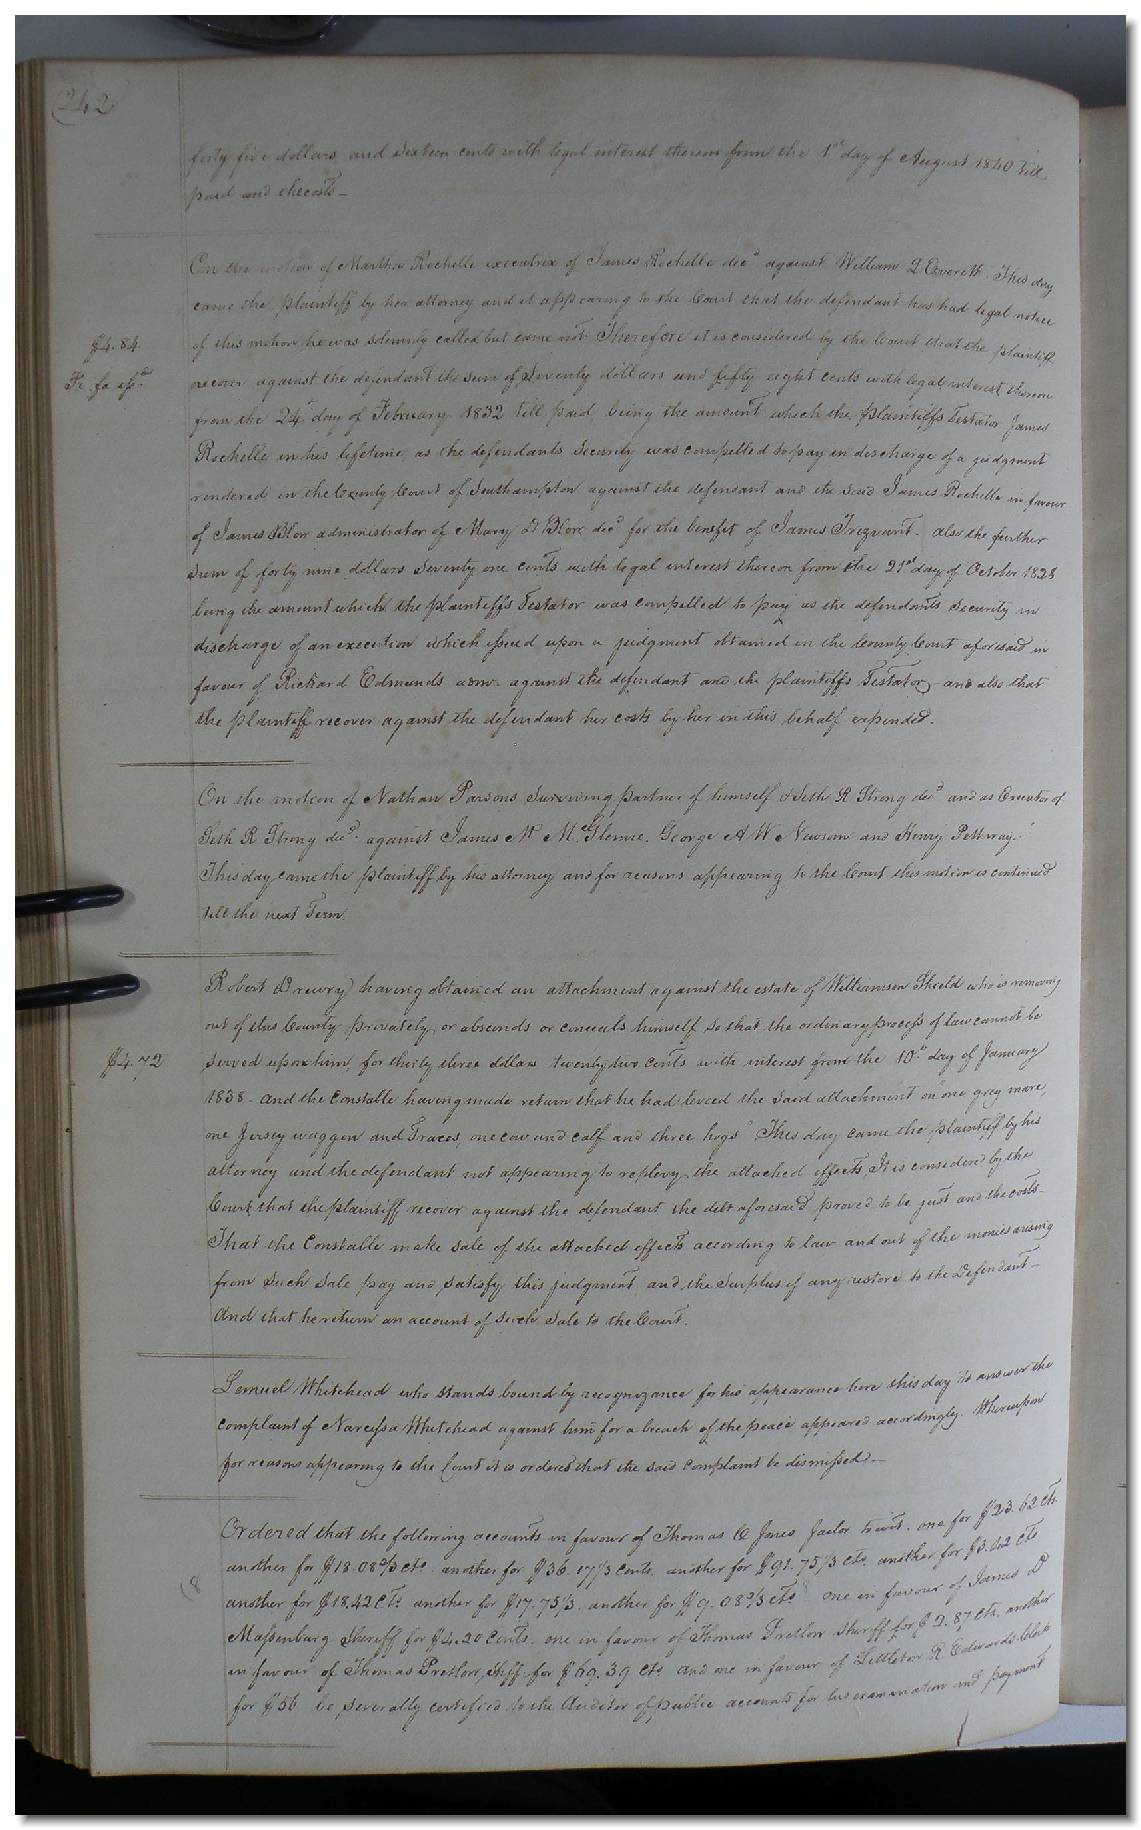 242
forty five dollars and sixteen cents with legal interest thereon from the 1st day of August 1840 till
paid and the costs —
On the motion of Martha Rochelle executrix of James Rochelle decd against William D Everett. This day
came the plaintiff by her attorney and it appearing to the Court that the defendant has had legal notice
$4.84
of this motion, he was solemnly called but came not. Therefore it is considered by the Court that the plaintiff
Fi. fa issd
recover against the defendant the sum of Seventy dollars and fifty eight cents with legal interest thereon
from the 24th day of February 1832 till paid, being the amount which the plaintiffs Testator James
Rochelle in his lifetime, as the defendants Security was compelled to pay in discharge of a judgment
rendered in the County Court of Southampton against the defendant and the said James Rochelle in favour
of James Blow administrator of Mary D Blow decd for the benefit of James Trezvant. also the further
sum of forty nine dollars seventy one cents with legal interest thereon from the 21st day of October 1828
being the amount which the plaintiffs Testator was compelled to pay as the defendants Security in
discharge of an execution which issued upon a judgment obtained in the County Court aforesaid in
favour of Richard Edmunds admr. against the defendant and the plaintiffs Testator, and also that
the plaintiff recover against the defendant her costs by her in this behalf expended.
On the motion of Nathan Parsons Surviving partner of himself & Seth R Strong decd and as Executor of
Seth R Strong decd. against James N McGlemre. George A W Newsom and Henry Pettway.
This day came the plaintiff by his attorney and for reasons appearing to the Court this motion is continued
till the next Term.
Robert Drewry having obtained an attachment against the estate of Williamson Shield who is removing
out of this County privately, or absconds or conceals himself so that the ordinary process of law cannot be
$4.72
served upon him, for thirty three dollars twenty two cents with interest from the 10th day of January
1838 - and the Constable having made return that he had levied the said attachment on "one grey mare,
one Jersey waggon and Traces, one cow and calf and three hogs" This day came the plaintiff by his
attorney and the defendant not appearing to replevy the attached effects, It is considered by the
Court that the plaintiff recover against the defendant the debt aforesaid proved to be just and the costs.
That the Constable make sale of the attached effects according to law and out of the monies arising
from such sale pay and satisfy this judgment, and the surplus if any restore to the Defendant —
And that he return an account of such sale to the Court.
Lemuel Whitehead who stands bound by recognizance for his appearance here this day to answer the
complaint of Narcissa Whitehead against him for a breach of the peace appeared accordingly. Whereupon
for reasons appearing to the Court it is ordered that the said complaint be dismissed —
Ordered that the following accounts in favour of Thomas C Jones Jailor towit. one for $23.62 cts.
another for $18.08 2/3 cts. another for $36.17 1/3 cents, another for $91.75 1/3 cts. another for $3.02 cts
another for $18.42 cts another for $17.75 1/3. another for $9.08 2/3 cts one in favour of James D
(8
Massenburg Sheriff for $4.20 cents. one in favour of Thomas Pretlow Sheriff for $2.87 cts, another
in favour of Thomas Pretlow, Shff. for $69.39 cts and one in favour of Littleton R Edwards Clerk
for $56 be severally certified to the Auditor of public accounts for his examination and payment